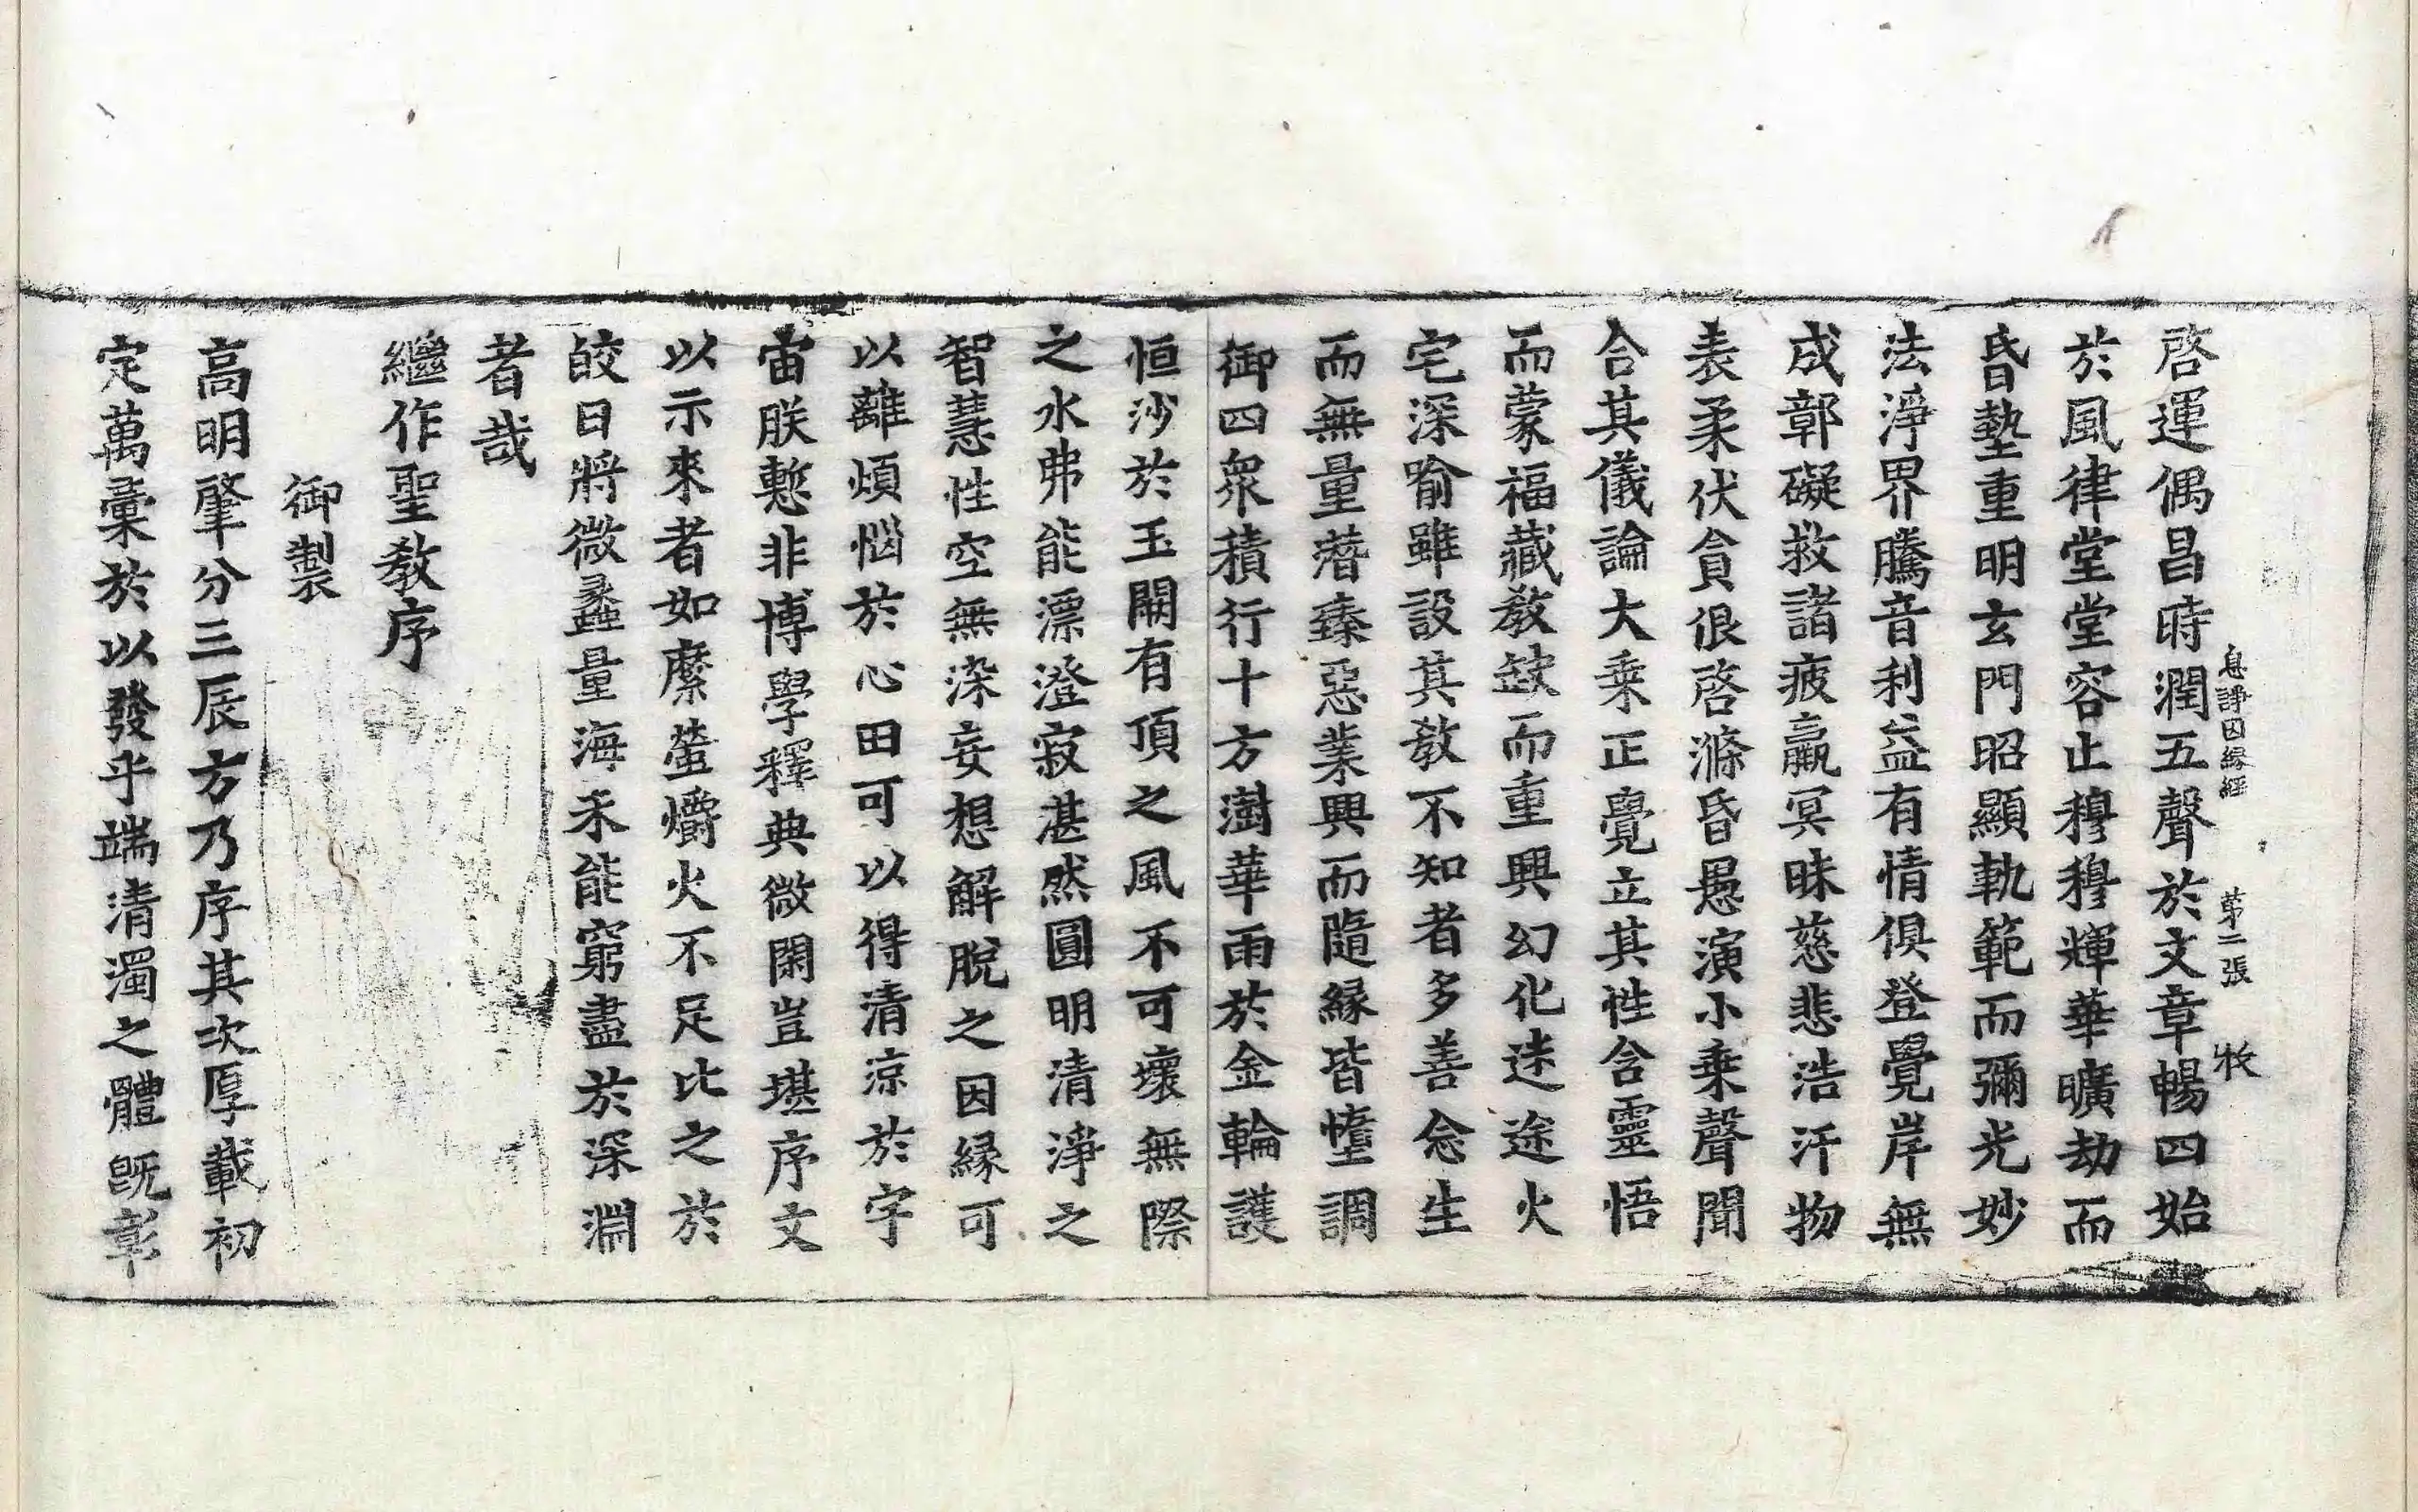 息諍因緣經　第二張　牧
啓運偶昌時潤五聲於文章暢四始
於風律堂堂容止穆穆輝華曠劫而
昏墊重明玄門昭顯軌範而彌光妙
法淨界騰音利益有情俱登覺岸無
成鄣礙救諸疲羸冥昧慈悲浩汗物
表柔伏貪佷啓滌昏愚演小乗聲聞
合其儀論大乗正覺立其性含靈悟
而蒙福藏教缺而重興幻化迷途火
宅深喻雖設其教不知者多善念生
而無量潛臻惡業興而隨緣皆墮調
御四衆積行十方澍華雨於金輪護
恒沙於玉闕有頂之風不可壞無際
之水弗能漂澄寂湛然圓明清淨之
智慧性空無染妄想解脫之因緣可
以離煩惱於心田可以得清凉於宇
宙朕慙非博學釋典微閑豈堪序文
以示來者如縻螢爝火不足比之於
皎日將微蠡量海未能窮盡於深淵
者哉
繼作聖教序
御製
高明肇分三辰方乃序其次厚載初
定萬彙於以發乎端清濁之體旣彰